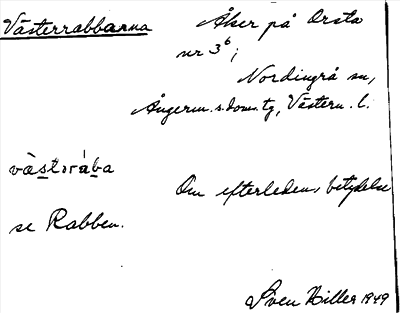 Västerrabbarna Åker på Orsta
nr 3⁶;
Nordingrå sn,
Ångerm. s. doms. tg, Västern. l.
västərába
Om efterledens betydelse
se Rabben.
Sven Hiller 1949